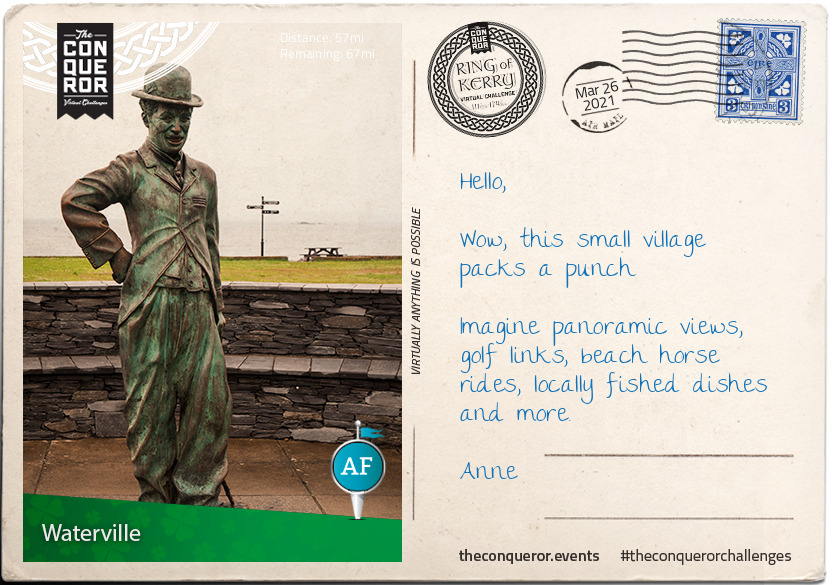 The
CON
QUE
ROR
Virtual Challenges
Distance: 57mi
Remaining: 67mi
AF
Waterville
VIRTUALLY ANYTHING IS POSSIBLE
The
CON
QUE
ROR
RING of
KERRY
VIRTUAL CHALLENGE
Mar 26
2021
AIR MAIL
éIRe
3
3
Hello,
Wow, this small village
packs a punch
Imagine panoramic views,
golf links, beach horse
rides, locally fished dishes
and more.
Anne
theconqueror.events #theconquerorchallenges